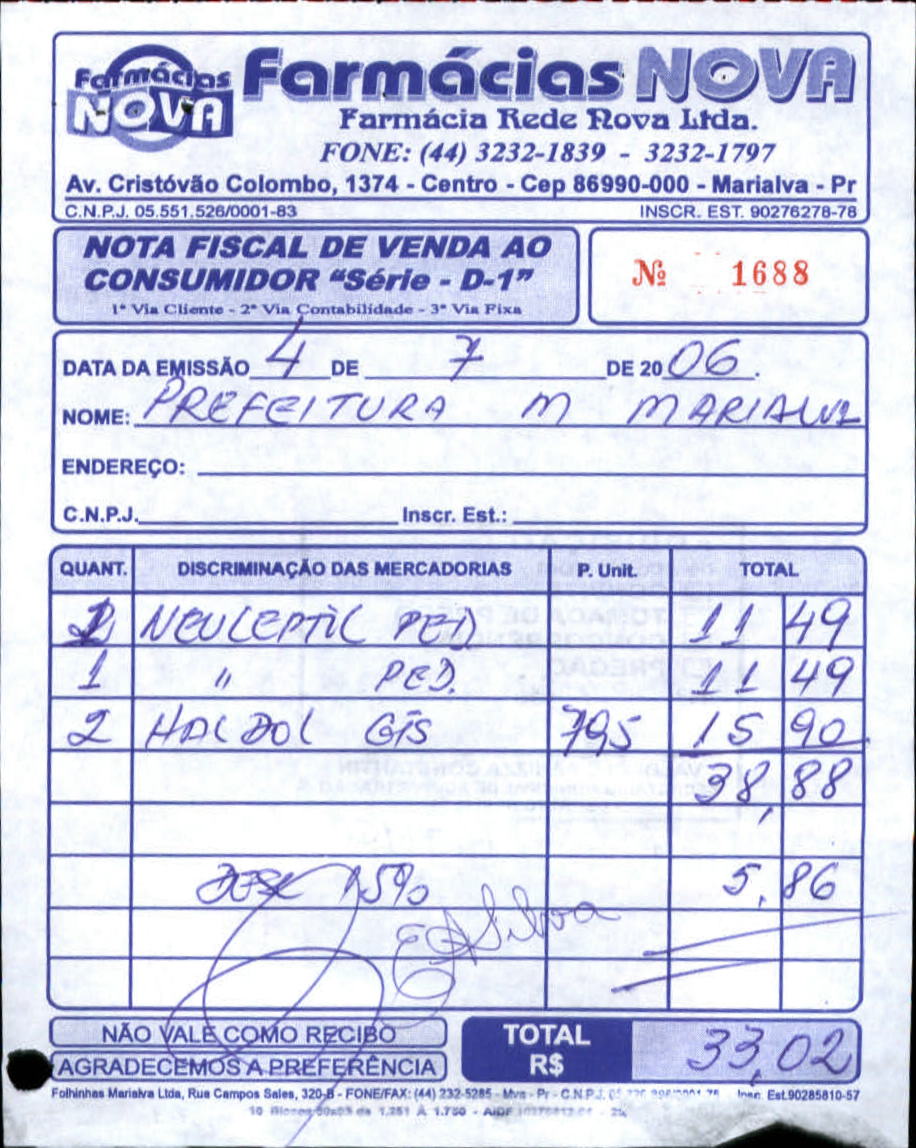 Farmácias NOVA Farmácias NOVA
Farmácia Rede Nova Ltda.
FONE: (44) 3232-1839 - 3232-1797
Av. Cristóvão Colombo, 1374 - Centro - Cep 86990-000 - Marialva - Pr
C.N.P.J. 05.551.526/0001-83 INSCR. EST. 90276278-78
NOTA FISCAL DE VENDA AO
CONSUMIDOR "Série - D-1"
1ª Via Cliente - 2ª Via Contabilidade - 3ª Via Fixa
Nº 1688
DATA DA EMISSÃO 4 DE 7 DE 2006.
NOME: PREFEITURA M MARIALVA
ENDEREÇO:
C.N.P.J. Inscr. Est.:
QUANT. DISCRIMINAÇÃO DAS MERCADORIAS P. Unit. TOTAL
1 NEULEPTIL PED 11 49
1 " PED. 11 49
2 HALDOL GTS 795 15 90
38,88
15% 5,86
Silva
NÃO VALE COMO RECIBO
AGRADECEMOS A PREFERÊNCIA
TOTAL
R$ 33,02
Folhinhas Marialva Ltda, Rua Campos Sales, 320-B - FONE/FAX: (44) 232-5285 - Mva - Pr - C.N.P.J. Insc. Est.90285810-57
10 Blocos 50x03 de 1.251 À 1.750 - AIDF